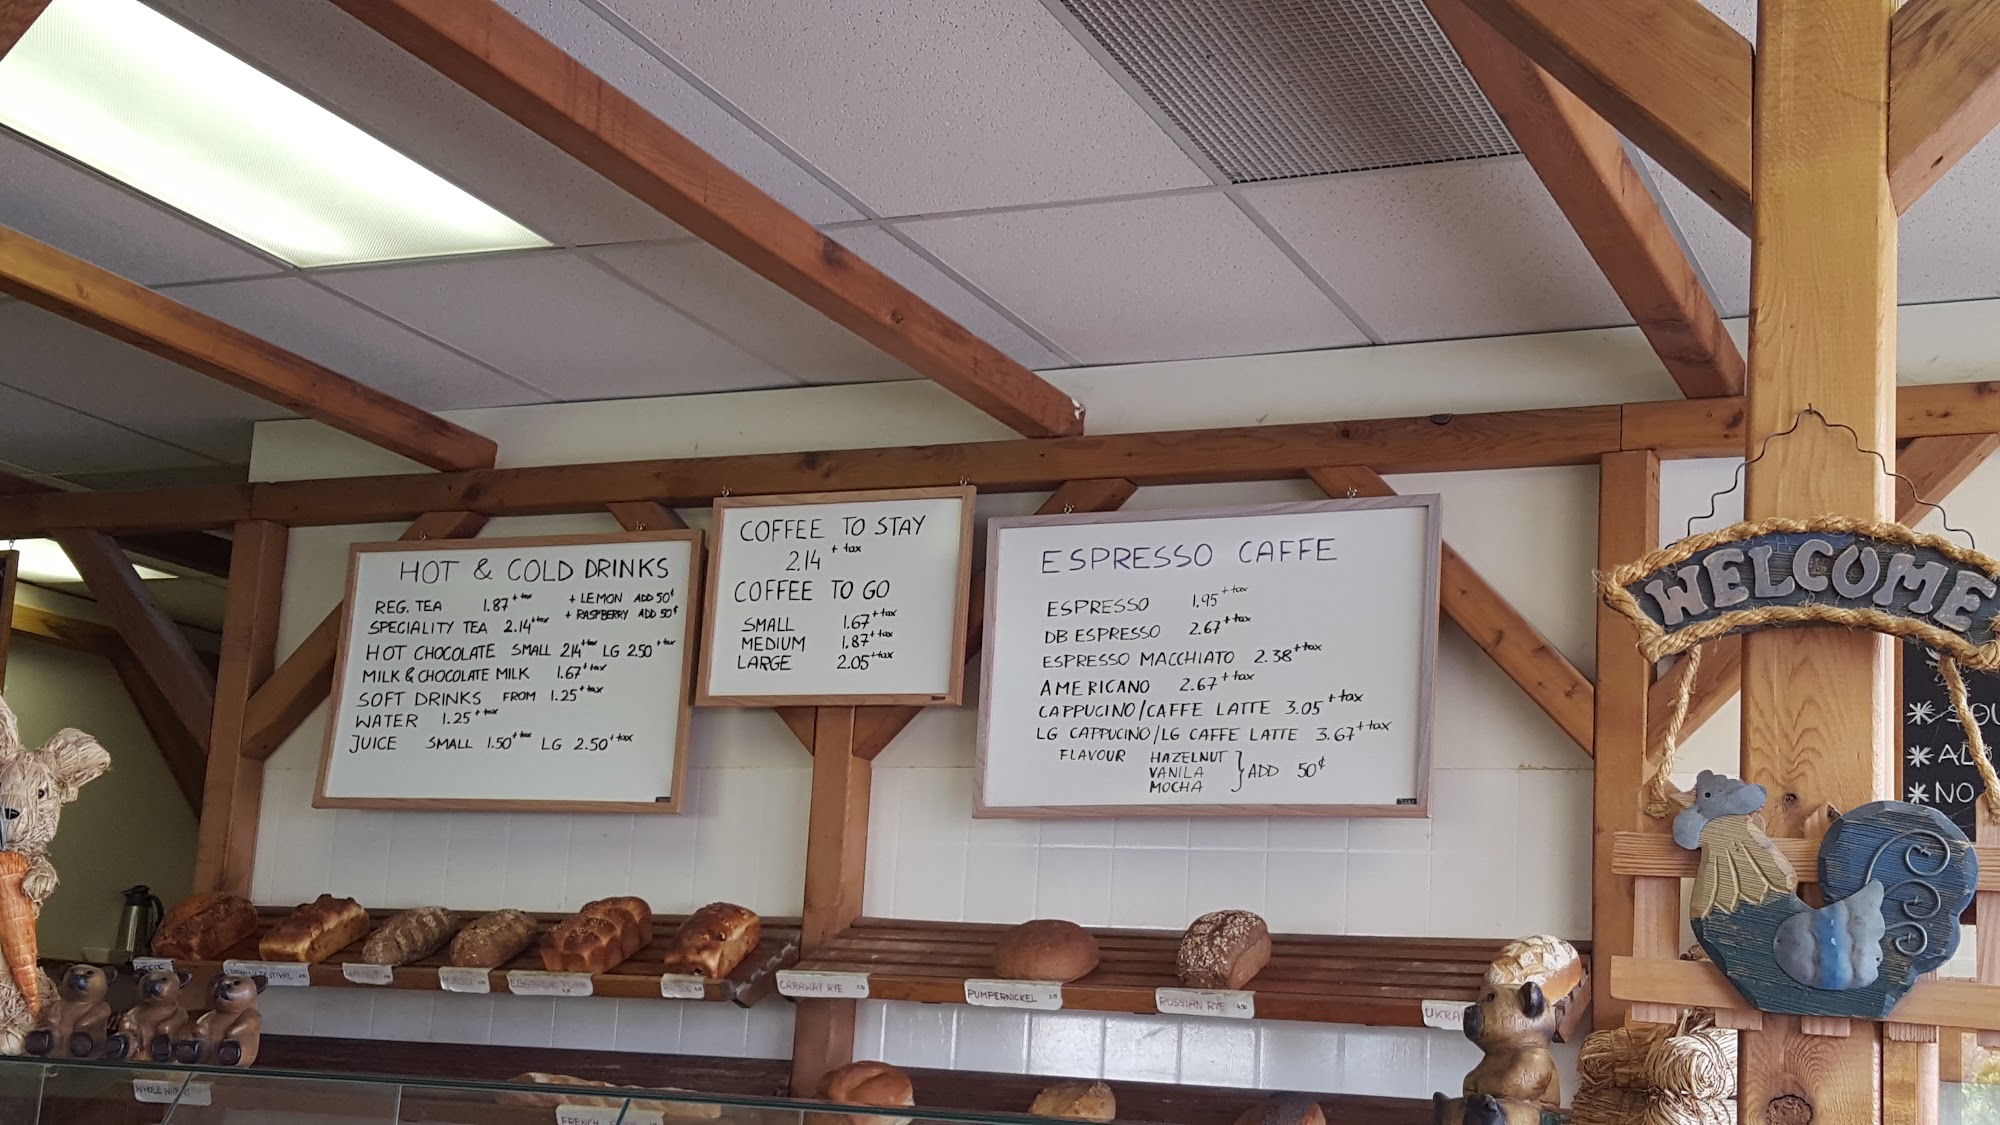 HOT & COLD DRINKS
REG. TEA 1.87 + tax + LEMON ADD 50¢
+ RASPBERRY ADD 50¢
SPECIALITY TEA 2.14 + tax
HOT CHOCOLATE SMALL 2.14 + tax LG 2.50 + tax
MILK & CHOCOLATE MILK 1.67 + tax
SOFT DRINKS FROM 1.25 + tax
WATER 1.25 + tax
JUICE SMALL 1.50 + tax LG 2.50 + tax
COFFEE TO STAY
2.14 + tax
COFFEE TO GO
SMALL 1.67 + tax
MEDIUM 1.87 + tax
LARGE 2.05 + tax
ESPRESSO CAFFE
ESPRESSO 1.95 + tax
DB ESPRESSO 2.67 + tax
ESPRESSO MACCHIATO 2.38 + tax
AMERICANO 2.67 + tax
CAPPUCINO/CAFFE LATTE 3.05 + tax
LG CAPPUCINO/LG CAFFE LATTE 3.67 + tax
FLAVOUR HAZELNUT
VANILA } ADD 50¢
MOCHA
WELCOME
* SOU
* AL
* NO
CARAWAY RYE
PUMPERNICKEL
RUSSIAN RYE
UKRA
WHOLE WHEAT
FRENCH